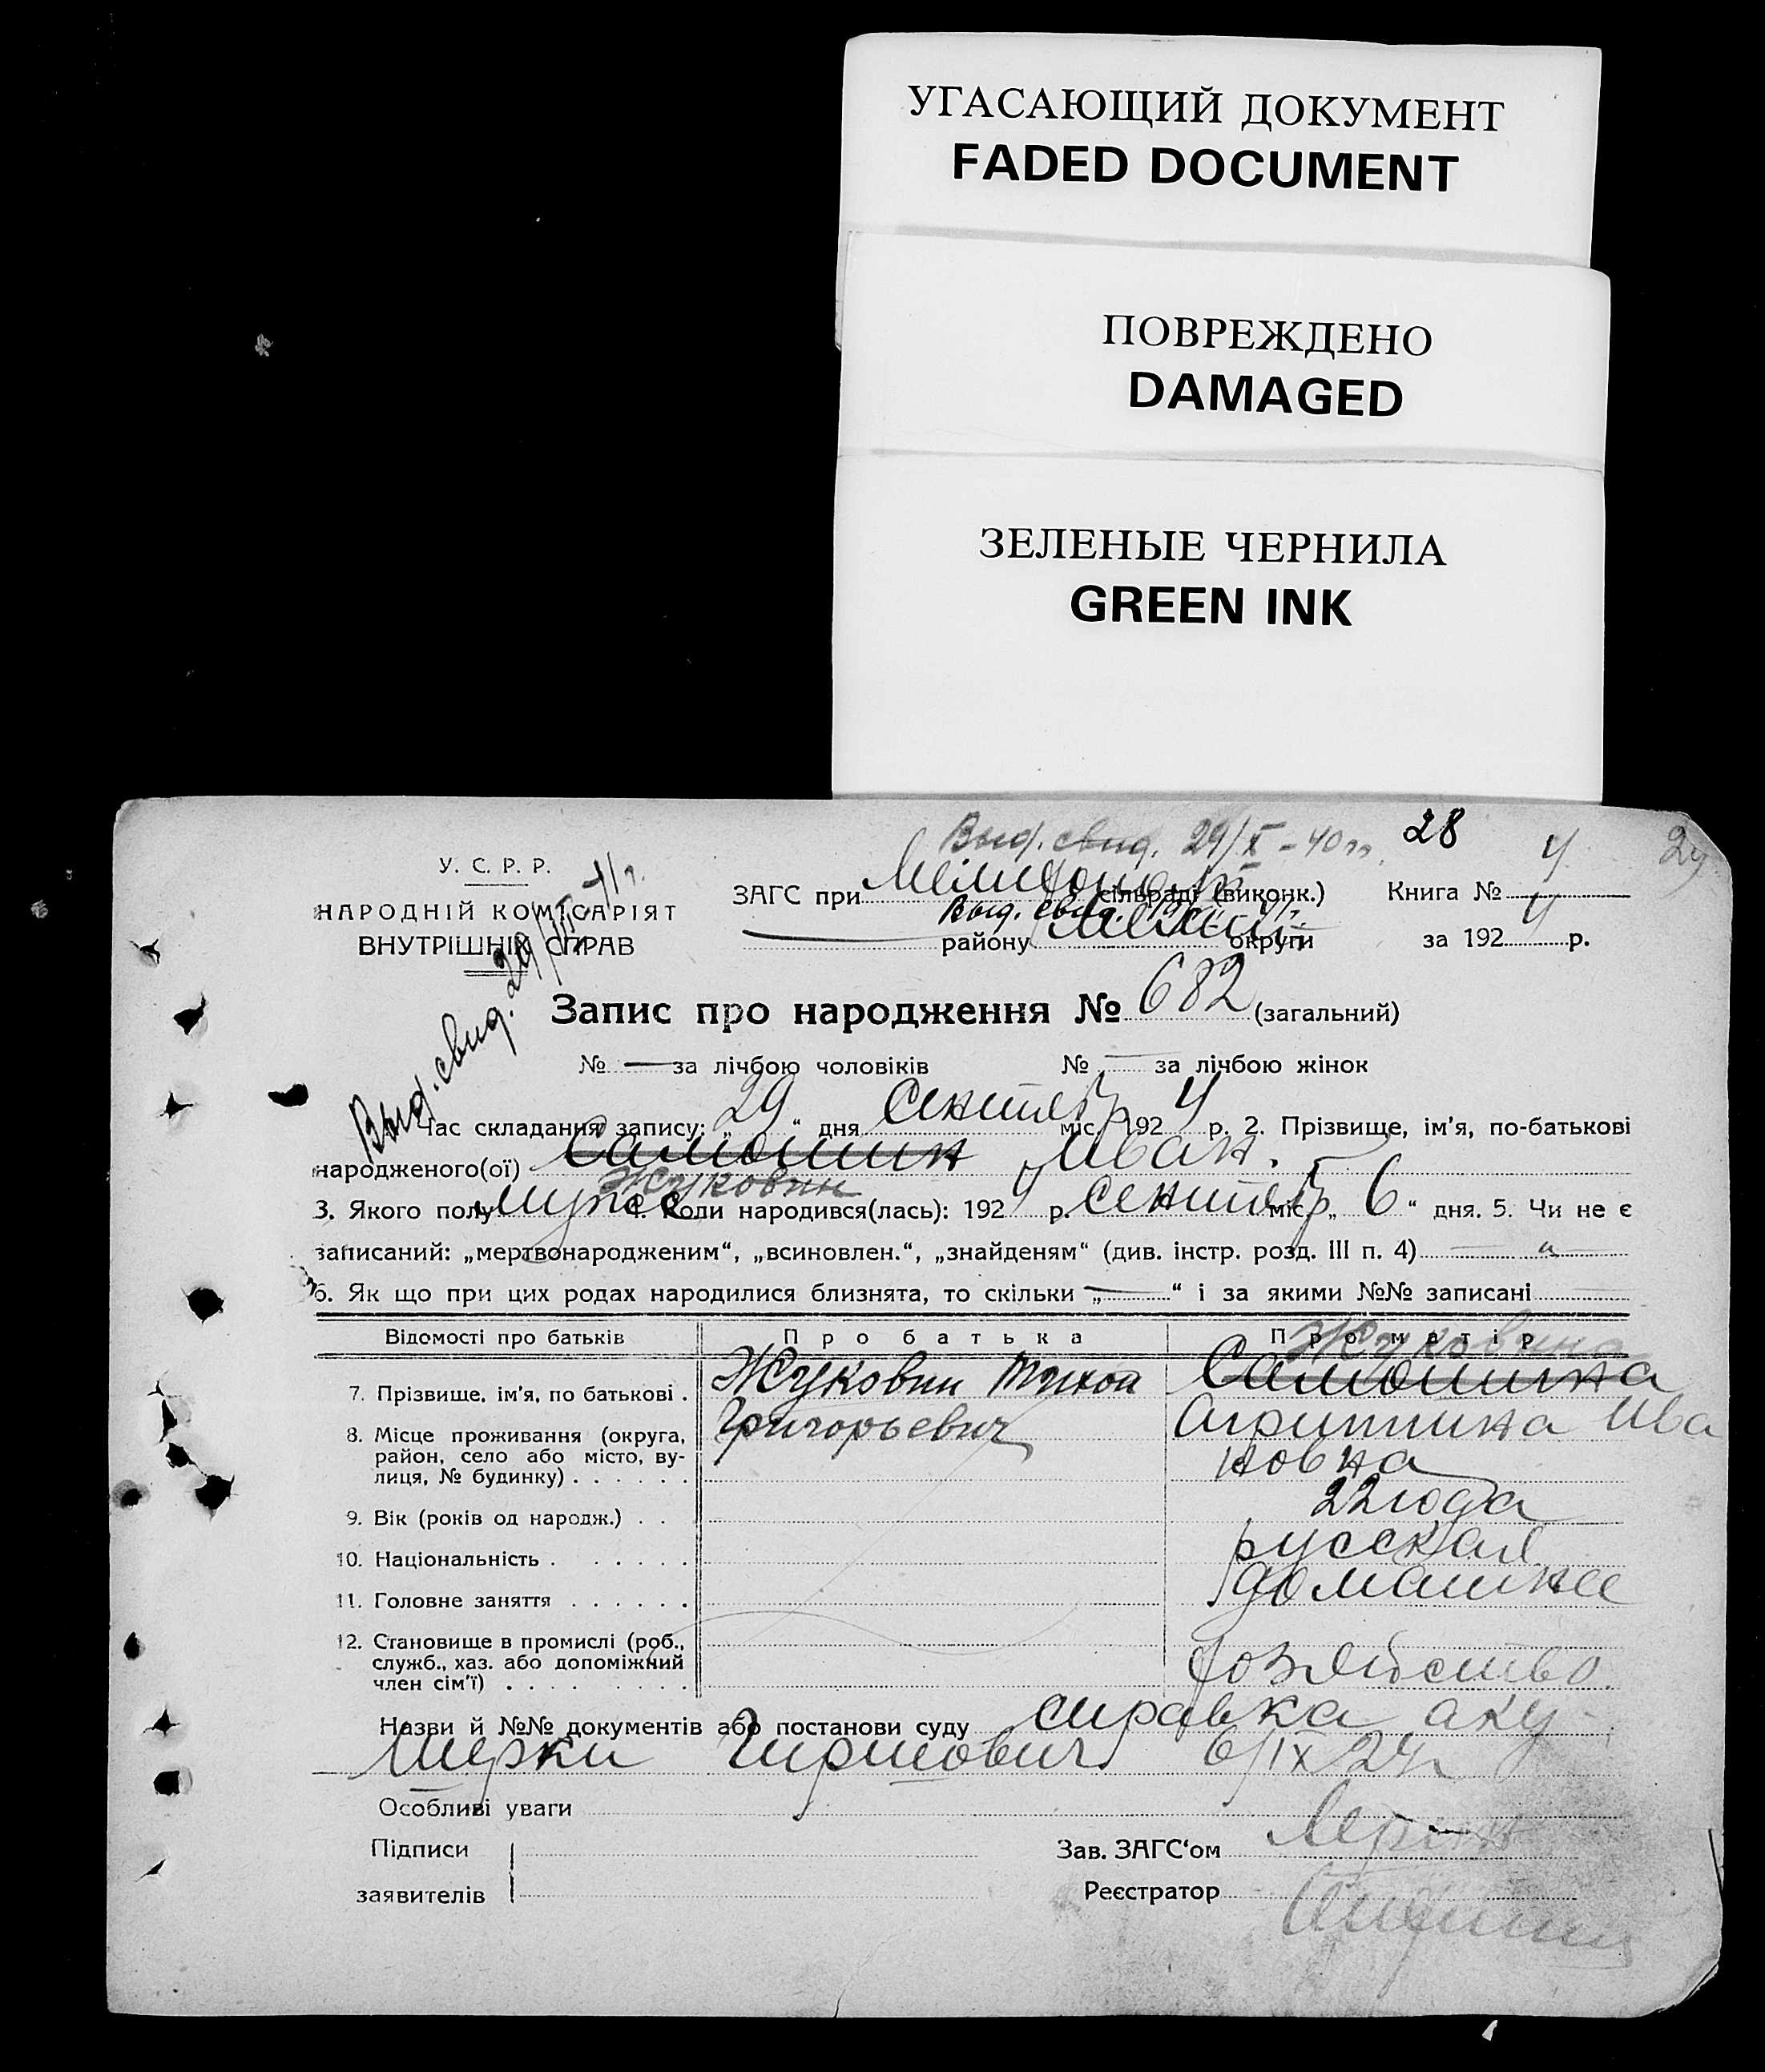 УГАСАЮЩИЙ ДОКУМЕНТ
FADED DOCUMENT
ПОВРЕЖДЕНО
DAMAGED
ЗЕЛЕНЫЕ ЧЕРНИЛА
GREEN INK
Выд. свид. 29/X - 40 г. 28 24
У. С. Р. Р.
НАРОДНІЙ КОМІСАРІЯТ
ВНУТРІШНІХ СПРАВ
Выд. свид. 29/
ЗАГС при сільраді (виконк.) Книга № 4
Выд. свид.
району округи за 192 4 р.
Запис про народження № 682 (загальний)
№ — за лічбою чоловіків № — за лічбою жінок
Час складання запису: „ 29 “ дня Сентябр міс. 192 4 р. 2. Прізвище, ім'я, по-батькові
народженого(ої) Самошин Иван.
Жуковин
3. Якого полу Муже 4. Коли народився(лась): 192 4 р. Сентябр міс. „ 6 “ дня. 5. Чи не є
записаний: „мертвонародженим“, „всиновлен.“, „знайденям“ (див. інстр. розд. III п. 4) — „ —
6. Як що при цих родах народилися близнята, то скільки „ — “ і за якими №№ записані
Відомості про батьків Про батька Про матір
Жуковина
7. Прізвище, ім'я, по батькові . Жуковин Тихон Самошина
8. Місце проживання (округа, район, село або місто, вулиця, № будинку) . . . . . . Григорьевич Агрипина Ива
новна
9. Вік (років од народж.) . . 22 года
10. Національність . . . . . . русская
11. Головне заняття . . . . . . домашнее
12. Становище в промислі (роб., служб., хаз. або допоміжний член сім'ї) . . . . . . . . хозяйство.
Назви й №№ документів або постанови суду справка аку-
шерки Гиршович 6/IX 24 г
Особливі уваги
Підписи
заявителів
Зав. ЗАГС'ом
Реєстратор